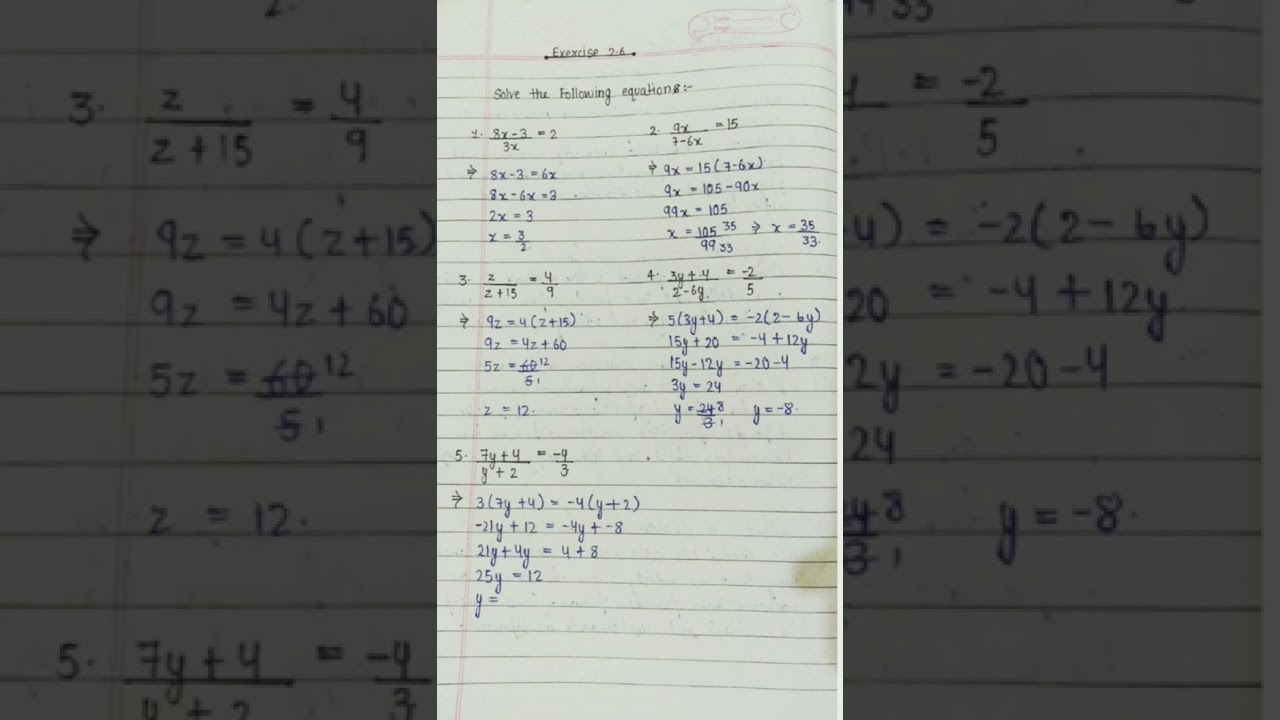 Date
Page
Exercise 2.6
Solve the Following equations:-
1. 8x-3/3x = 2
⇒ 8x-3 = 6x
8x-6x = 3
2x = 3
x = 3/2
2. 9x/7-6x = 15
⇒ 9x = 15(7-6x)
9x = 105-90x
99x = 105
x = 105 35/99 33 ⇒ x = 35/33.
3. z/z+15 = 4/9
⇒ 9z = 4(z+15)
9z = 4z+60
5z = 60 12/5 1
z = 12.
4. 3y+4/2-6y = -2/5
⇒ 5(3y+4) = -2(2-6y)
15y+20 = -4+12y
15y-12y = -20-4
3y = 24
y = 24 8/3 1 y = -8.
5. 7y+4/y+2 = -4/3
⇒ 3(7y+4) = -4(y+2)
-21y+12 = -4y+-8
21y+4y = 4+8
25y = 12
y =